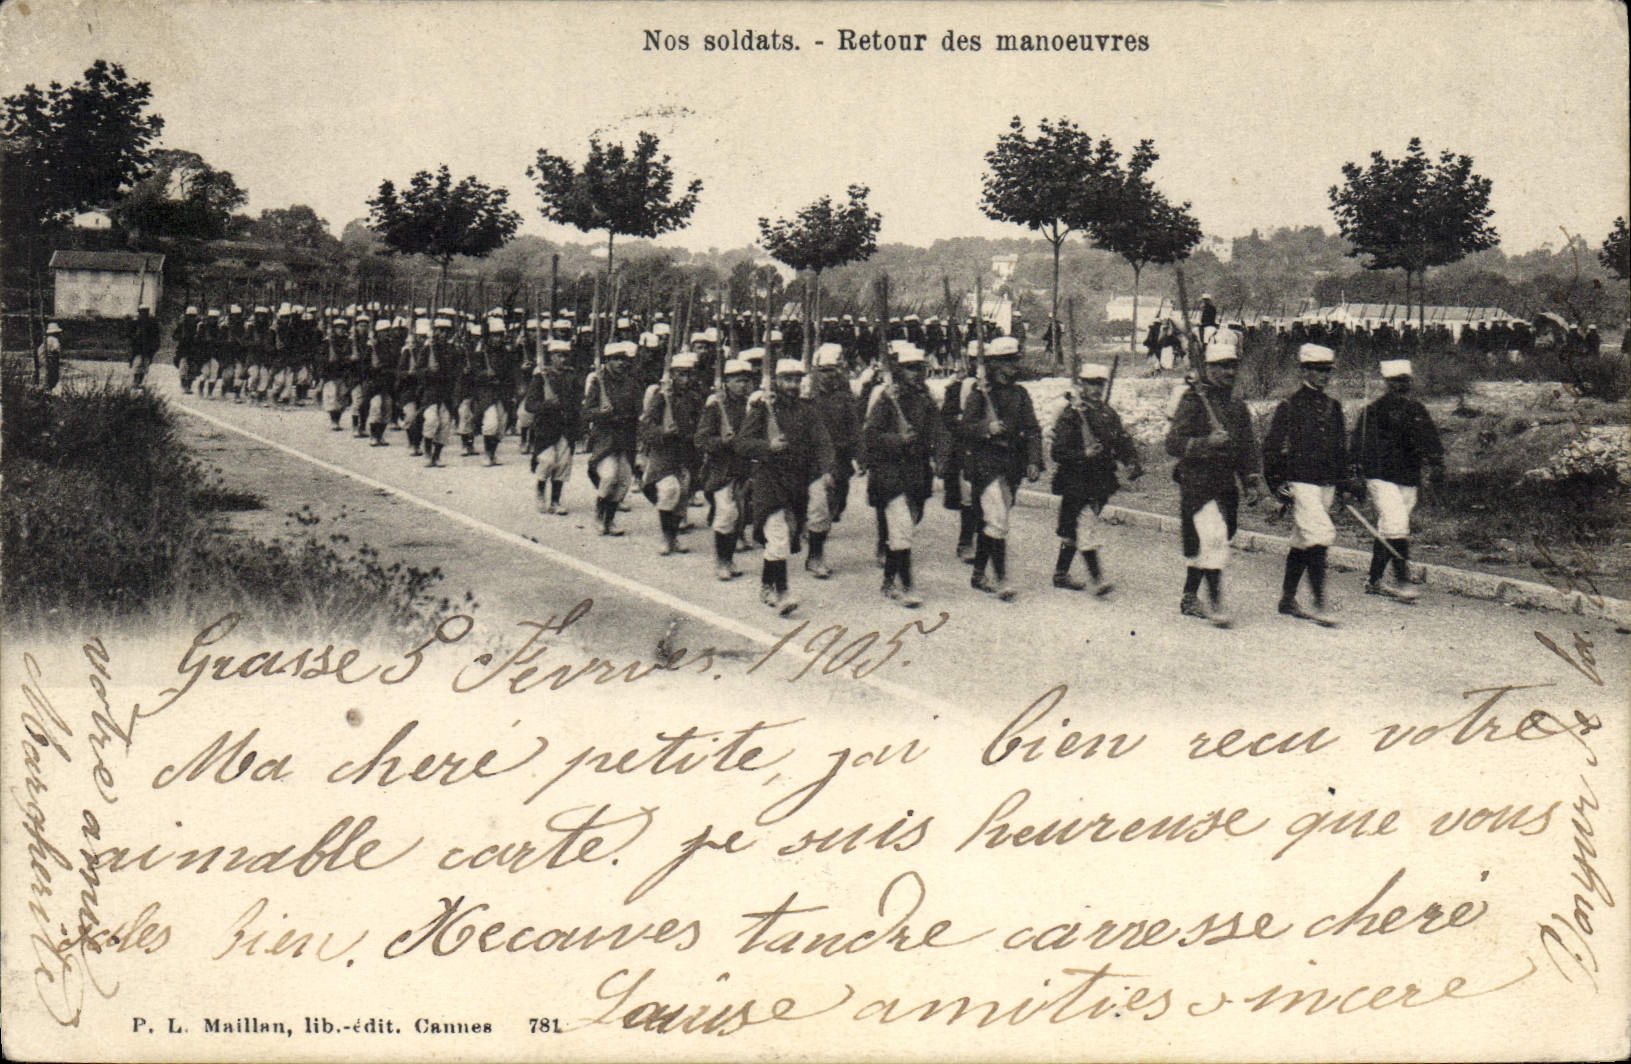 Nos soldats. - Retour des manoeuvres
Grasse 5 Fevrier. 1905.
Ma cheré petite, jai bien recu votre
aimable carte. je suis heureuse que vous
bien. Recouves tandre carresse cheré
Louise amitiés sincere
votre amie
Margherite
Bonjour a
P. L. Maillan, lib.-édit. Cannes 781